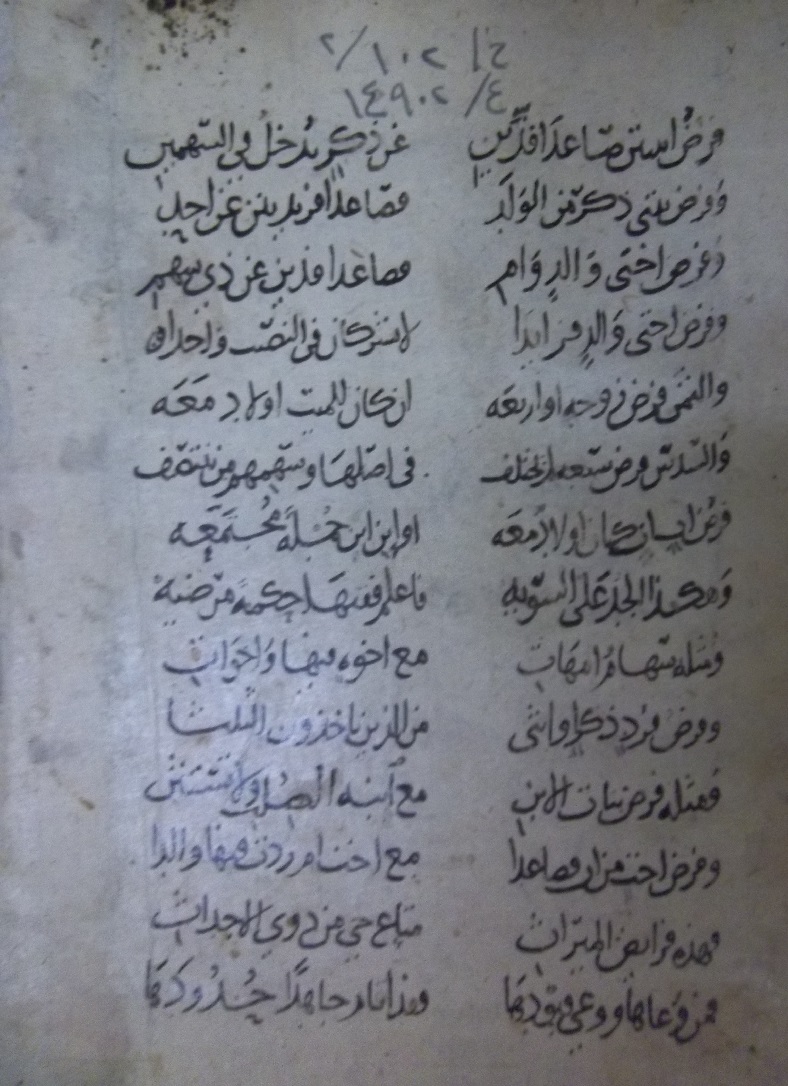 ح/ ١٠٢/٢
ع/ ١٤٩٠٢
فرض اثنتين صاعدا عن ذكر يدخل في السهمين
وفرض بنتي ذكر من الولد فصاعدا افردتين عن احد
وفرض اختي والد وام فصاعدا عن ذي سهم
وفرض اختي والد ابدا لا يشركان في النصيب واحدا
والثمن فرض زوجه او اربعه ان كان للميت اولاد معه
والسدس فرض سبعه لم يختلف في اصلها وسهمهم من ينتصف
فرض اب ان كان اولاد معه او ابن ابن جمله مجتمعه
وهكذا الجد على السويه فاعلم ففيها حكمه مرضيه
ومثله سهام امهات مع اخوه فيها واخوات
وفرض فرد ذكر او انثى من الذين ياخذون الثلثا
ومثله فرض بنات الابن مع ابنه الصلب ولا
وفرض اخت من اب فصاعدا مع اخت ام ووالدا
فهذه فرايض الميراث متاع حي من ذوي الاجداث
فمن وعاها ووعى قيودها جاهدا حدودها